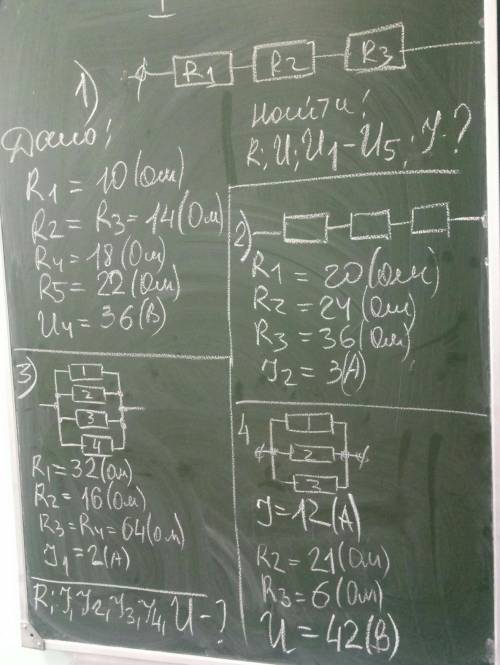 1)
R1 R2 R3
Дано:
R1 = 10 (Ом)
R2 = R3 = 14 (Ом)
R4 = 18 (Ом)
R5 = 22 (Ом)
U4 = 36 (В)
Найти:
R; U; U1 - U5; I - ?
2)
R1 = 20 (Ом)
R2 = 24 (Ом)
R3 = 36 (Ом)
I2 = 3 (А)
3)
1
2
3
4
R1 = 32 (Ом)
R2 = 16 (Ом)
R3 = R4 = 64 (Ом)
I1 = 2 (А)
R; I, I2, I3, I4, U - ?
4
1
2
3
I = 12 (А)
R2 = 21 (Ом)
R3 = 6 (Ом)
U = 42 (В)